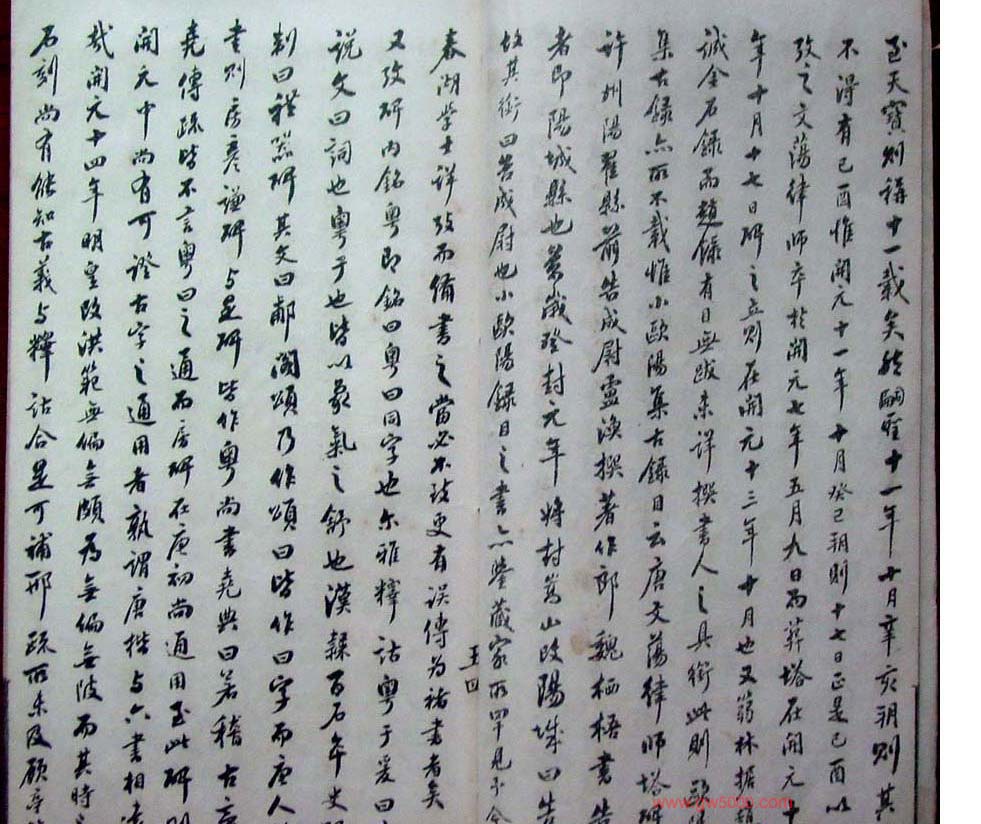 至天寳則稱十一載矣 十一年十月辛亥朔則其
不得有己酉惟開元十一年十月癸巳朔則十七日正是己酉以
攷之文蕩律師卒於開元七年五月九日而葬塔在開元十
年十月十七日碑之立則在開元十三年十月也又
誠金石錄而趙錄有目無跋未詳撰書人之具銜此則
集古錄亦所不載惟小歐陽集古錄目云唐文蕩律師塔碑
許州陽翟縣前告成尉盧渙撰著作郎魏栖梧書告
者即陽城縣也萬歲登封元年將封嵩山改陽城曰告
故其銜曰告成尉也小歐陽録目之書亦鑒藏家所罕見
春湖學士詳攷而備書之當必不致更有誤傳為褚書者矣
又攷碑内銘粤即銘曰粤曰同字也尔雅釋詁粤于爰曰
說文曰詞也粤亏也皆以象氣之舒也漢隸百石卒史
制曰禮器碑其文曰郙閣頌乃作頌曰皆作曰字而唐人
書則房彦謙碑与是碑皆作粤尚書堯典曰若稽古
堯傳疏皆不言粤曰之通而房碑在唐初尚通用至此碑則
開元中尚有可證古字之通用者孰謂唐楷与六書相
哉開元十四年明皇改洪範無偏無頗為無偏無陂而其時
石刻尚有能知古義与釋詁合是可補邢疏所未及
五四
www.gw5000.com